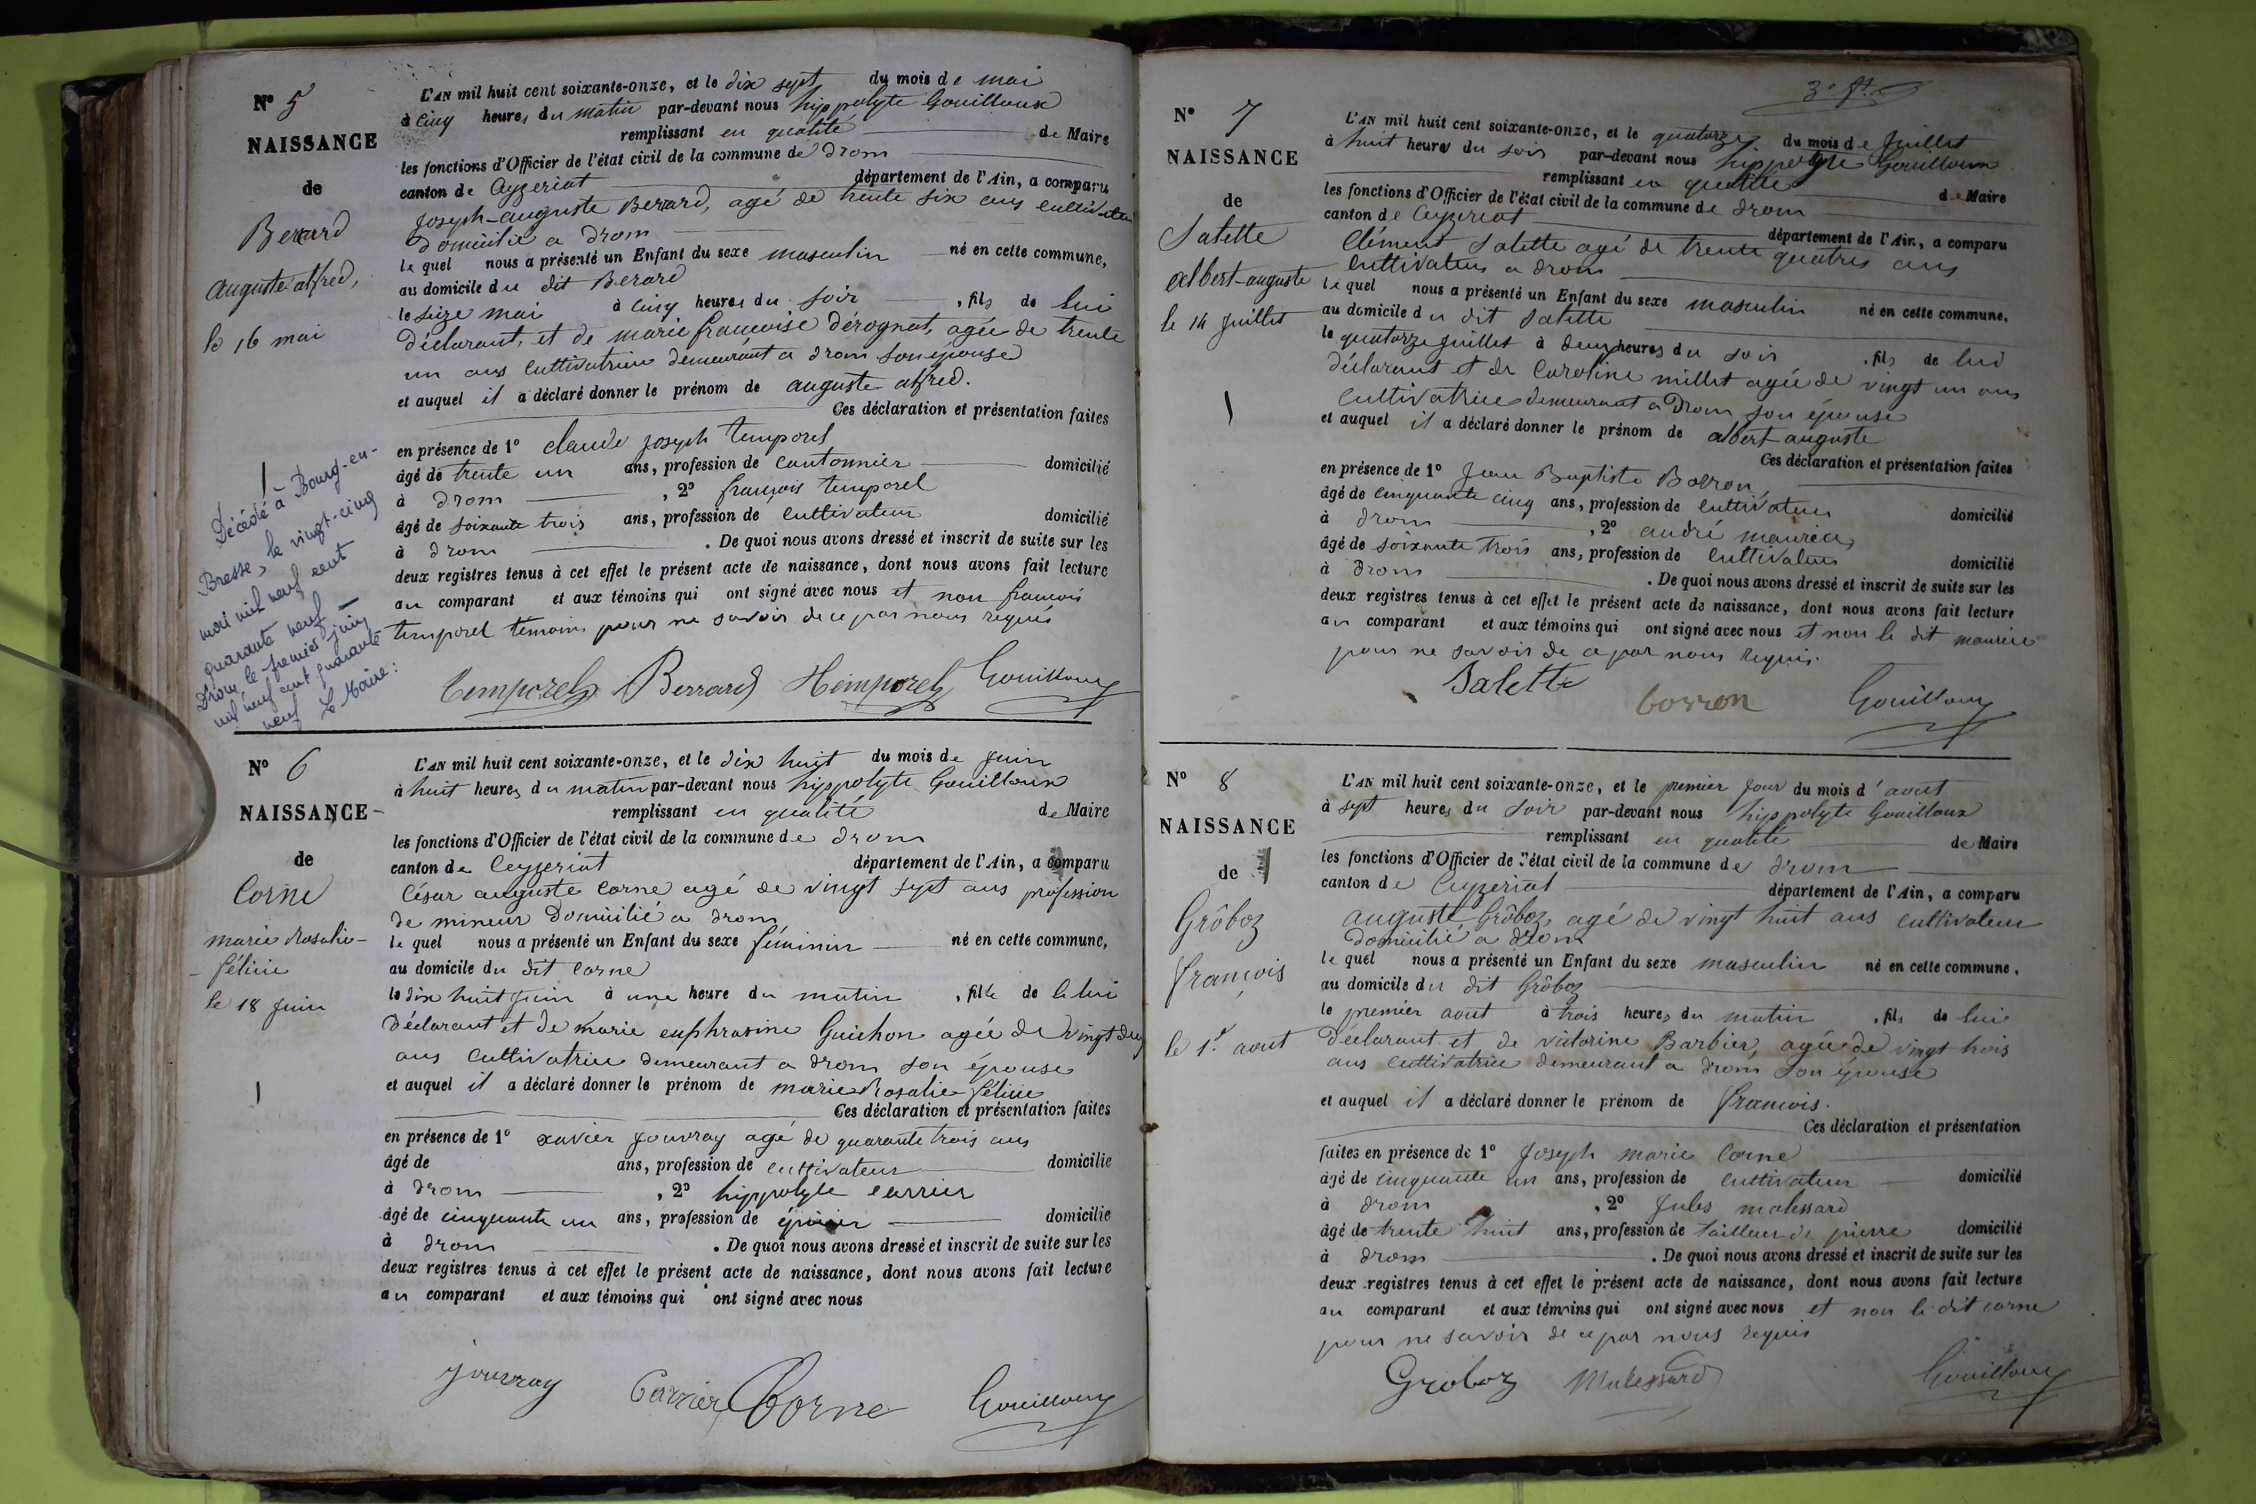 N° 5
NAISSANCE
de
Berard
auguste alfred,
le 16 mai
L'AN mil huit cent soixante-onze, et le dix sept du mois de mai
à cinq heures du matin par-devant nous hippolyte Gouilloux
remplissant en qualité de Maire
les fonctions d'Officier de l'état civil de la commune de drom
canton de Ceyzeriat département de l'Ain, a comparu
Joseph-auguste Berard, agé de trente six ans cultivateur
domicilié a drom
le quel nous a présenté un Enfant du sexe masculin né en cette commune,
au domicile du dit Berard
le seize mai à cinq heures du soir , fils de lui
déclarant, et de marie françoise dérognat, agée de trente
un ans cultivatrice demeurant a drom son épouse
et auquel il a déclaré donner le prénom de auguste alfred.
Ces déclaration et présentation faites
en présence de 1° claude joseph temporel
âgé de trente un ans, profession de cantonnier domicilié
à drom , 2° françois temporel
âgé de soixante trois ans, profession de cultivateur domicilié
à drom . De quoi nous avons dressé et inscrit de suite sur les
deux registres tenus à cet effet le présent acte de naissance, dont nous avons fait lecture
au comparant et aux témoins qui ont signé avec nous et non francois
temporel témoin pour ne savoir de ce par nous requis
Décédé à Bourg-en-
Bresse, le vingt-cinq
mai mil neuf cent
quarante neuf
Drom le premier juin
mil neuf cent quarante
neuf Le Maire:
temporel Berrard Gouilloux
N° 6
NAISSANCE
de
Corne
marie Rosalie
félicie
le 18 juin
L'AN mil huit cent soixante-onze, et le dix huit du mois de juin
à huit heures du matin par-devant nous hippolyte Gouilloux
remplissant en qualité de Maire
les fonctions d'Officier de l'état civil de la commune de drom
canton de Ceyzeriat département de l'Ain, a comparu
César auguste Corne agé de vingt sept ans profession
de mineur domicilié a drom
le quel nous a présenté un Enfant du sexe féminin né en cette commune,
au domicile du dit Corne
le dix huit juin à une heure du matin , fille de lui
déclarant et de marie euphrasine Guichon agée de vingt deux
ans cultivatrice demeurant a drom son épouse
et auquel il a déclaré donner le prénom de marie Rosalie félicie
Ces déclaration et présentation faites
en présence de 1° xavier jouvray agé de quarante trois ans
âgé de ans, profession de cultivateur domicilié
à drom , 2° hippolyte carrier
âgé de cinquante un ans, profession de épicier domicilié
à drom . De quoi nous avons dressé et inscrit de suite sur les
deux registres tenus à cet effet le présent acte de naissance, dont nous avons fait lecture
au comparant et aux témoins qui ont signé avec nous
jouvray Carrier Corne Gouilloux
N° 7
NAISSANCE
de
Salette
albert-auguste
le 14 juillet
3e ft
L'AN mil huit cent soixante-onze, et le quatorze du mois de juillet
à huit heures du soir par-devant nous hippolyte Gouilloux
remplissant en qualité de Maire
les fonctions d'Officier de l'état civil de la commune de drom
canton de Ceyzeriat département de l'Ain, a comparu
Clément Salette agé de trente quatres ans
cultivateur a drom
le quel nous a présenté un Enfant du sexe masculin né en cette commune,
au domicile du dit Salette
le quatorze juillet à deux heures du soir , fils de lui
déclarant et de Caroline millet agée de vingt un ans
cultivatrice demeurant a Drom son épouse
et auquel il a déclaré donner le prénom de albert-auguste
Ces déclaration et présentation faites
en présence de 1° Jean Baptiste Borron
âgé de cinquante cinq ans, profession de cultivateur domicilié
à drom , 2° andré maurice
âgé de soixante trois ans, profession de cultivateur domicilié
à drom . De quoi nous avons dressé et inscrit de suite sur les
deux registres tenus à cet effet le présent acte de naissance, dont nous avons fait lecture
au comparant et aux témoins qui ont signé avec nous et non le dit maurice
pour ne savoir de ce par nous requis.
Salette borron Gouilloux
N° 8
NAISSANCE
de
Grôboz
françois
le 1r aout
L'AN mil huit cent soixante-onze, et le premier jour du mois d'aout
à sept heures du soir par-devant nous hippolyte Gouilloux
remplissant en qualité de Maire
les fonctions d'Officier de l'état civil de la commune de drom
canton de Ceyzeriat département de l'Ain, a comparu
auguste Grôboz, agé de vingt huit ans cultivateur
domicilié a drom
le quel nous a présenté un Enfant du sexe masculin né en cette commune,
au domicile du dit Grôboz
le premier aout à trois heures du matin , fils de lui
déclarant et de victorine Barbier, agée de vingt trois
ans cultivatrice demeurant a drom son épouse
et auquel il a déclaré donner le prénom de francois.
Ces déclaration et présentation
faites en présence de 1° Joseph marie Corne
âgé de cinquante un ans, profession de cultivateur domicilié
à drom , 2° Jules malessard
âgé de trente huit ans, profession de tailleur de pierre domicilié
à drom . De quoi nous avons dressé et inscrit de suite sur les
deux registres tenus à cet effet le présent acte de naissance, dont nous avons fait lecture
au comparant et aux témoins qui ont signé avec nous et non le dit corne
pour ne savoir de ce par nous requis
Groboz Malessard Gouilloux